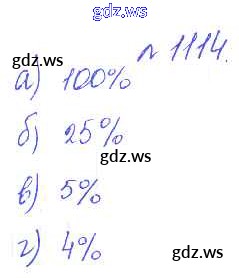 gdz.ws
№ 1114.
gdz.ws
а) 100%
б) 25%
gdz.ws
в) 5%
г) 4%
gdz.ws